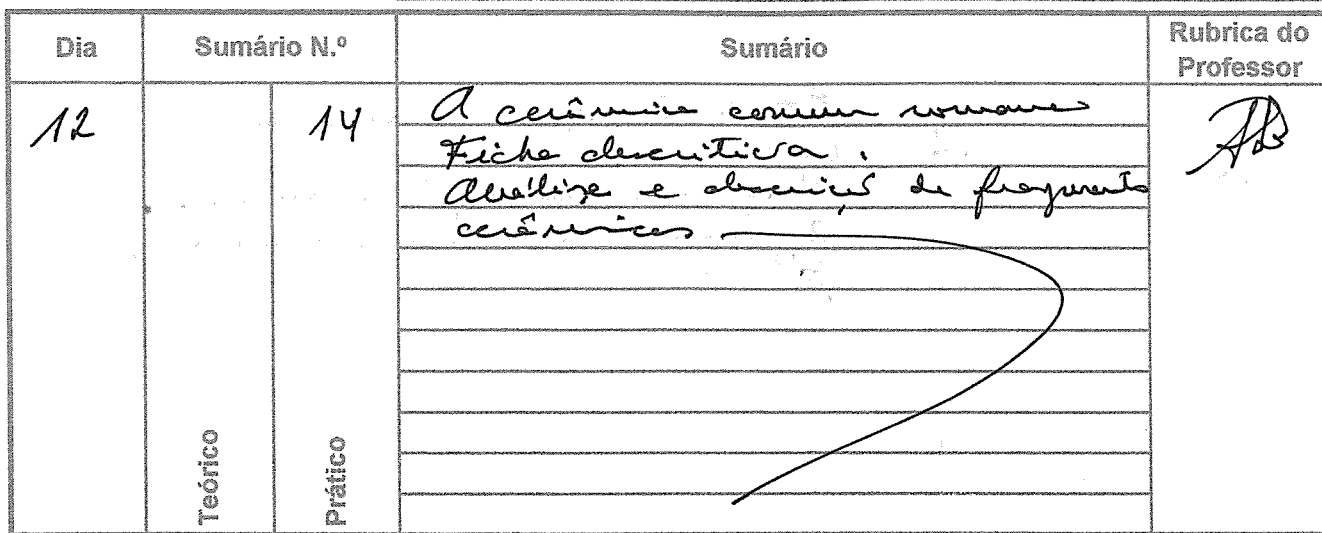 Dia Sumário N.º Sumário Rubrica do Professor
12 14 A cerâmica comum romana
Ficha descritiva.
Análise e descrição de fragmentos
cerâmicos
Teórico Prático